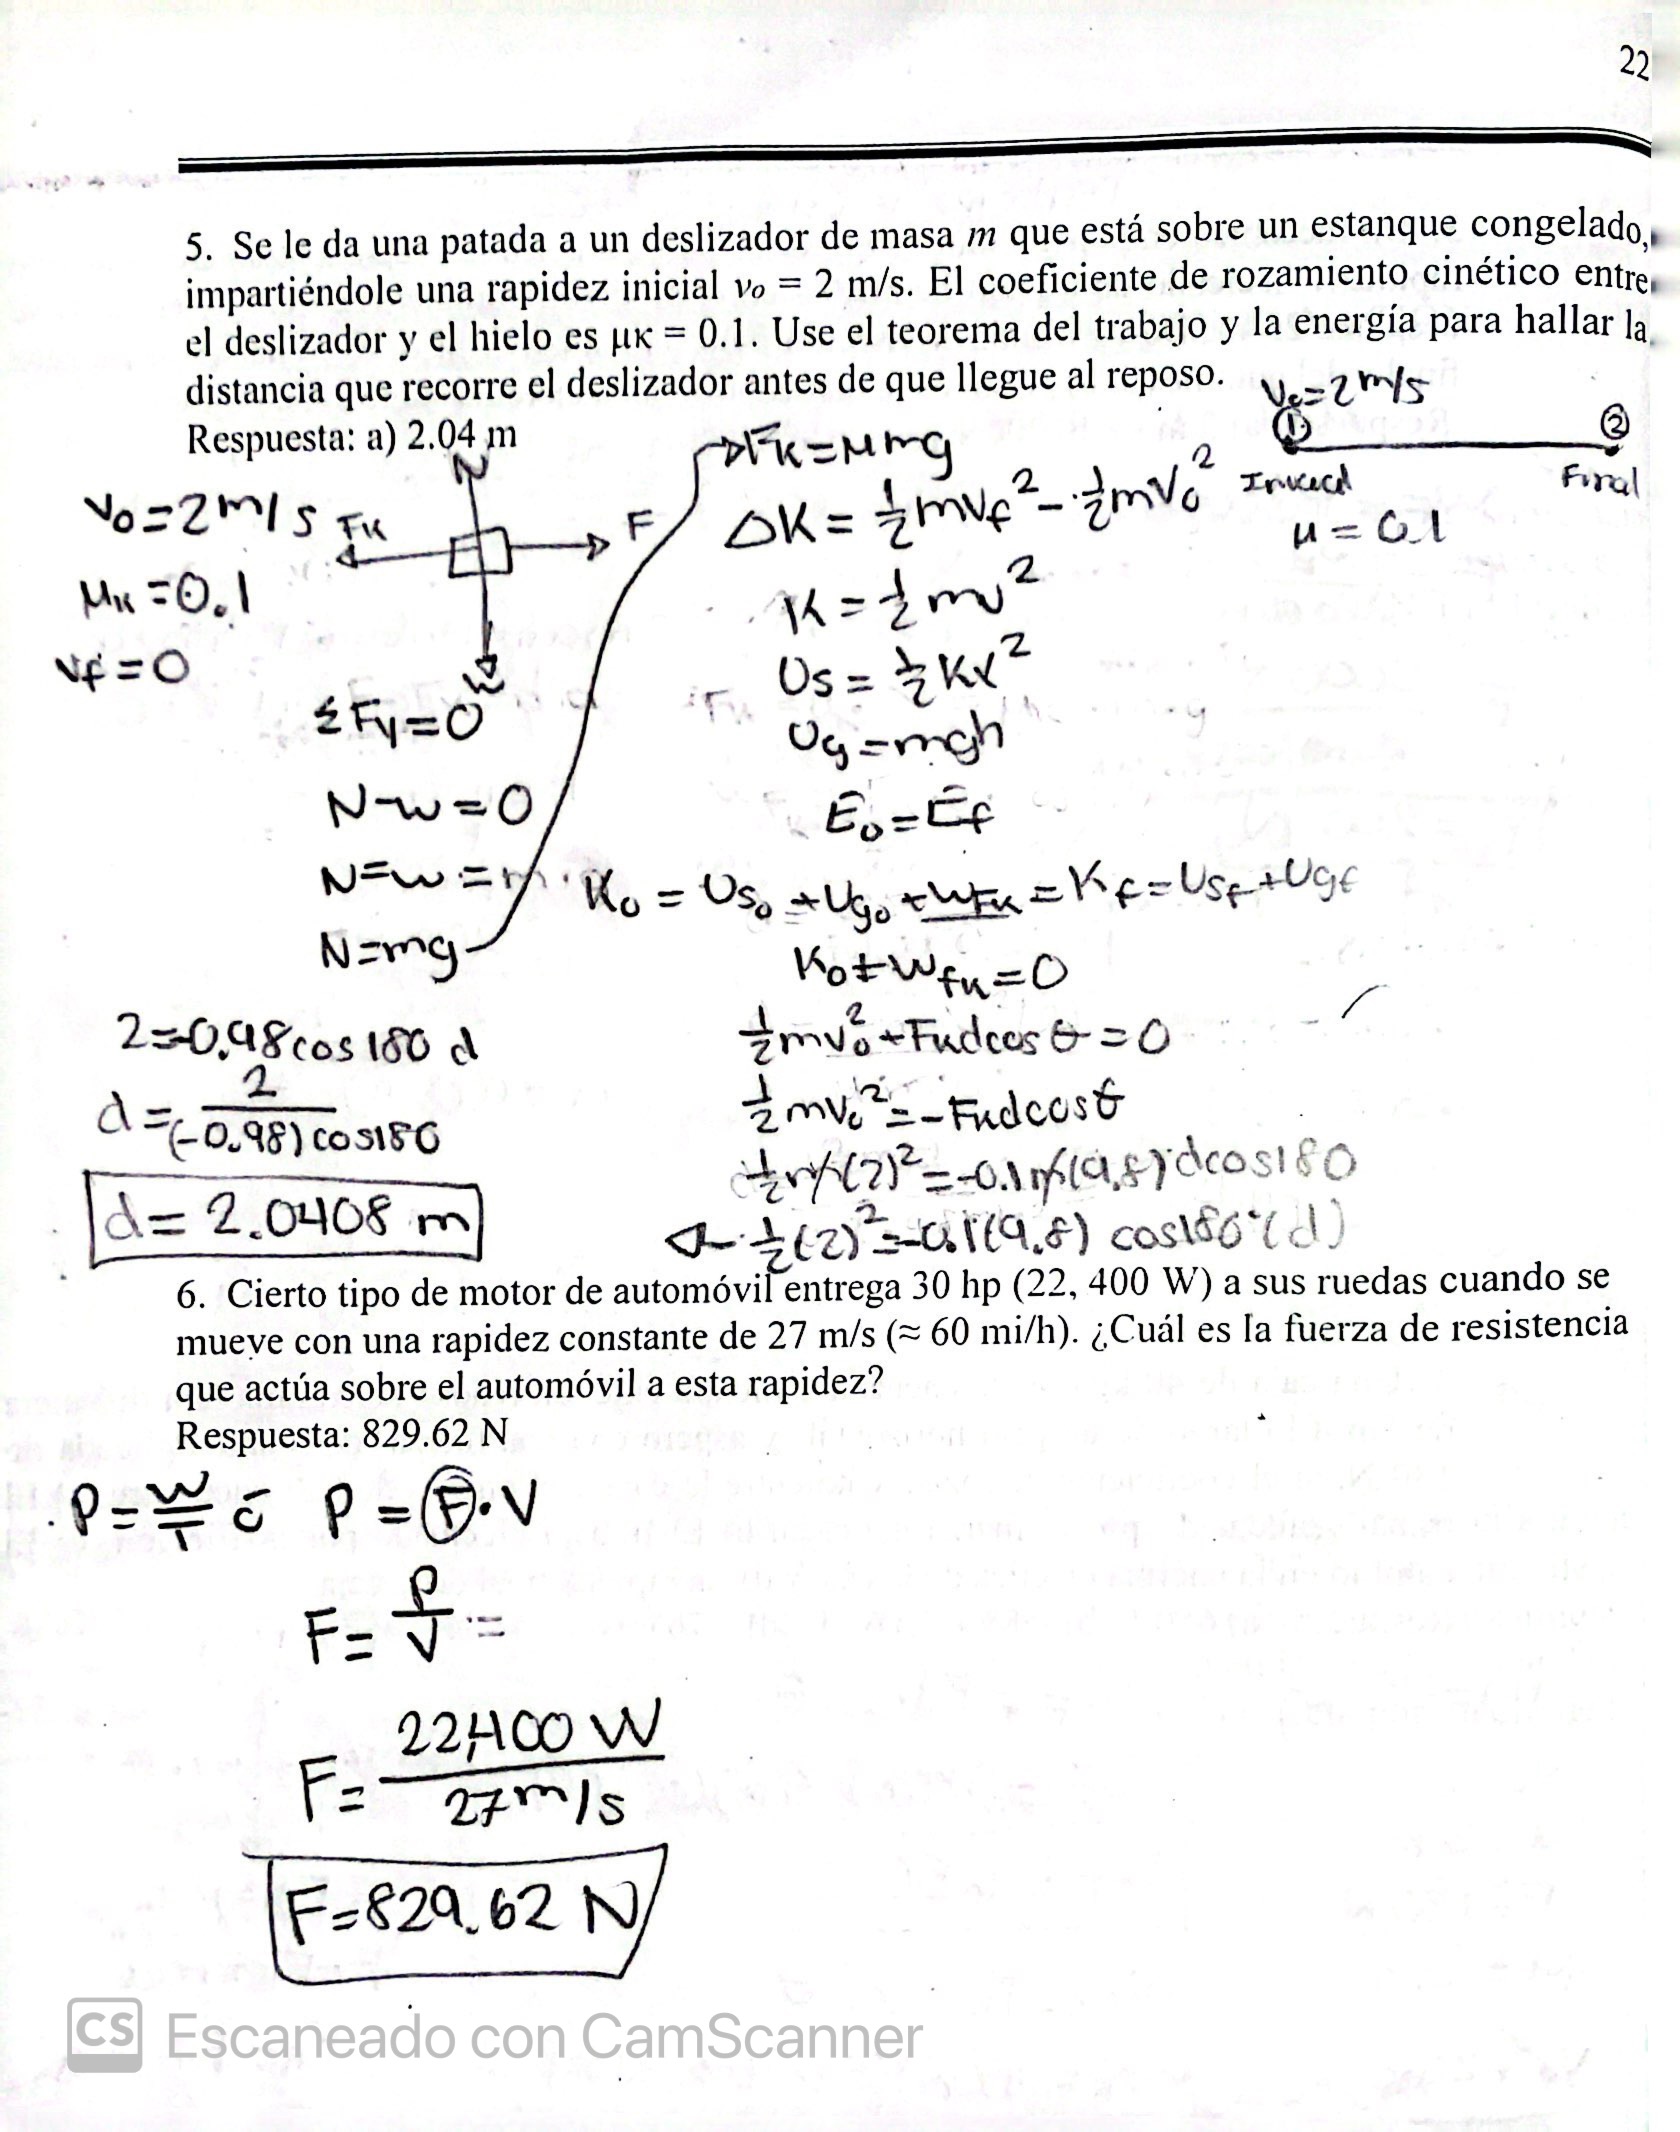 22
5. Se le da una patada a un deslizador de masa m que está sobre un estanque congelado,
impartiéndole una rapidez inicial vo = 2 m/s. El coeficiente de rozamiento cinético entre
el deslizador y el hielo es μK = 0.1. Use el teorema del trabajo y la energía para hallar la
distancia que recorre el deslizador antes de que llegue al reposo.
Respuesta: a) 2.04 m
Vo=2m/s
1
2
Inicial
Final
μ = 0.1
Vo=2m/s
μk=0.1
Vf=0
N
Fk
F
w
ΣFy=0
N-w=0
N=w=m
N=mg
Fk=μmg
ΔK = ½mVf² - ½mVo²
K = ½mv²
Us = ½Kx²
Ug=mgh
Eo=Ef
Ko = Uso + Ugo + WFk = Kf = Usf + Ugf
Ko+Wfk=0
½mvo²+Fkdcosθ=0
½mvo²=-Fkdcosθ
½m(2)²=-0.1m(9.8)dcos180
½(2)²=-0.1(9.8) cos180°(d)
2=-0.98cos180 d
d=2/(-0.98)cos180
d= 2.0408 m
6. Cierto tipo de motor de automóvil entrega 30 hp (22, 400 W) a sus ruedas cuando se
mueve con una rapidez constante de 27 m/s (≈ 60 mi/h). ¿Cuál es la fuerza de resistencia
que actúa sobre el automóvil a esta rapidez?
Respuesta: 829.62 N
P=W/T ó P=F·V
F=P/V=
F=22,400 W/27m/s
F=829.62 N
CS Escaneado con CamScanner